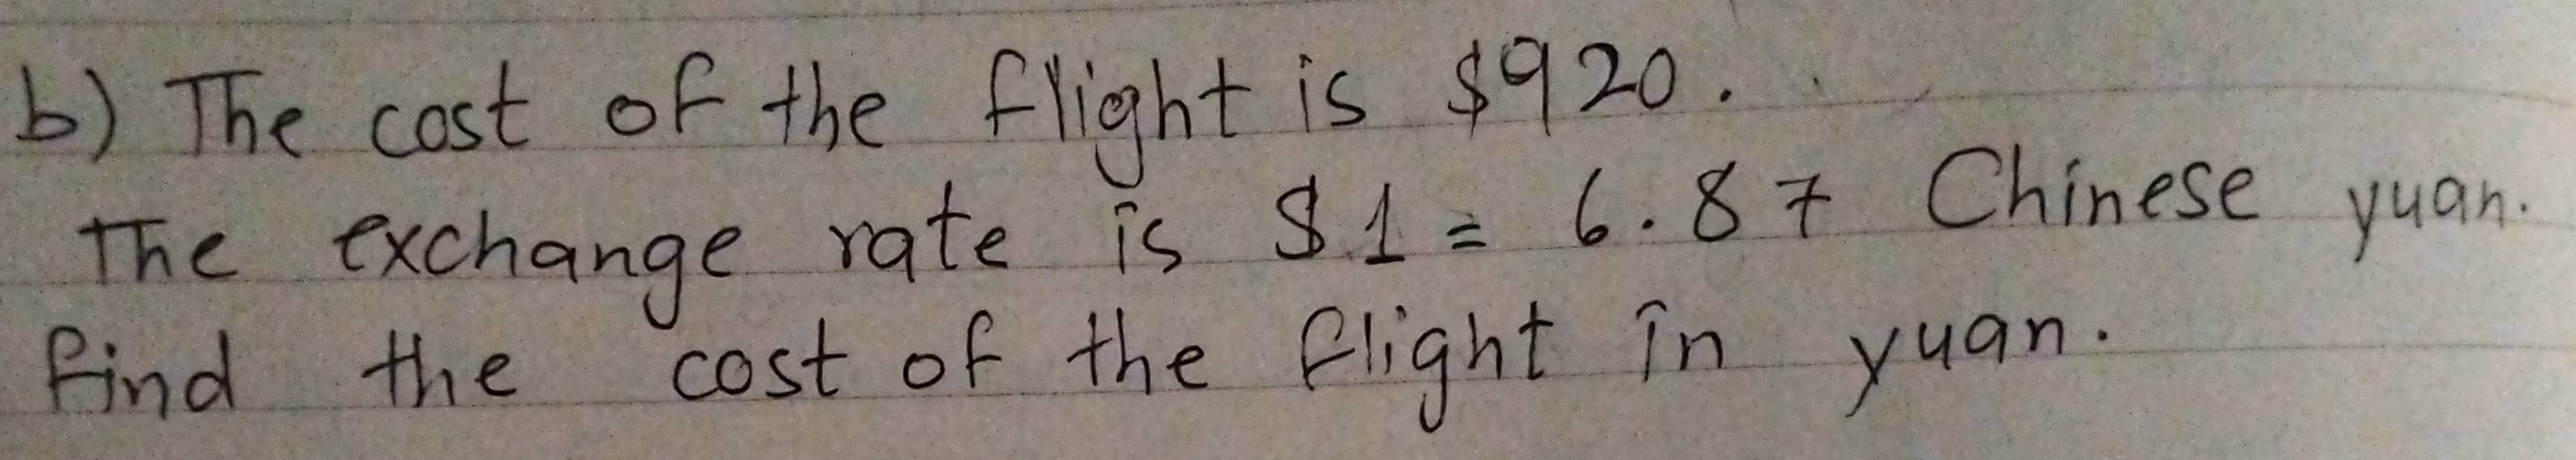 b) The cost of the flight is $920.
The exchange rate is $1 = 6.87 Chinese yuan.
find the cost of the flight in yuan.